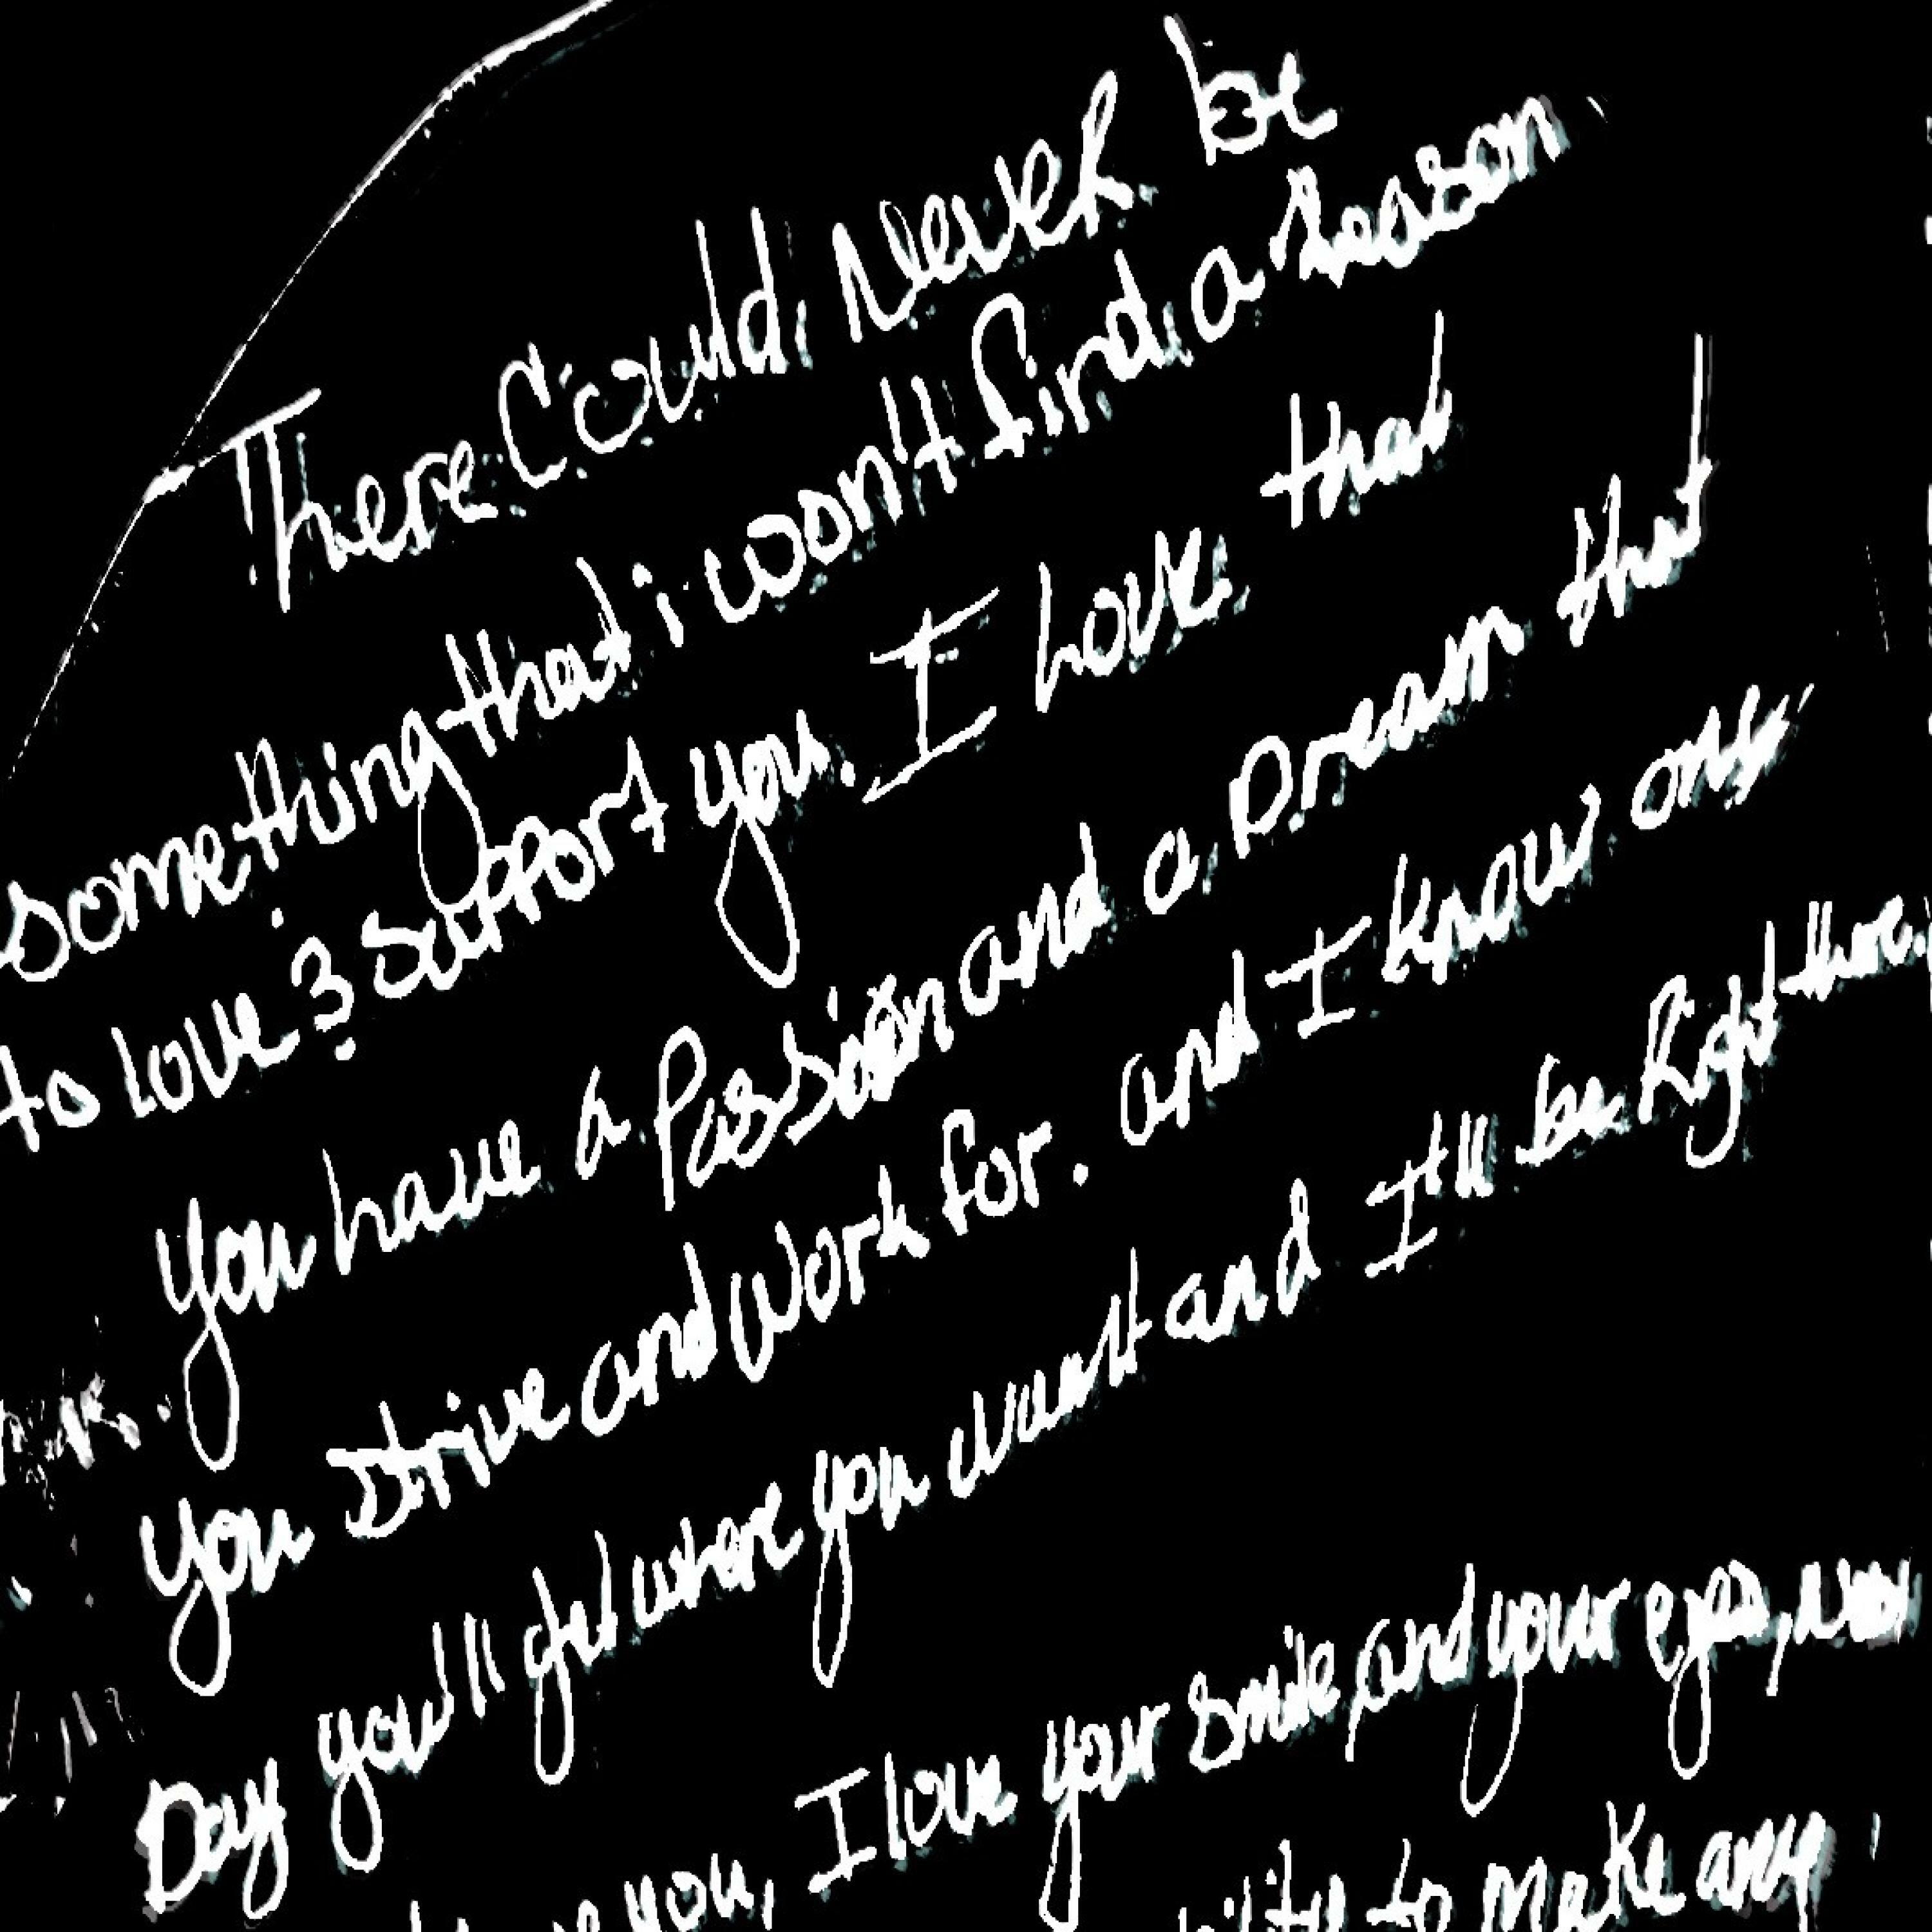 There Could Never be
something that i won't find a reason
to love & support you. I love that
You have a Passion and a Dream that
you strive and work for. and I know one
Day you'll get where you want and I'll be Right there
you, I love your smile, and your eyes,
to make any